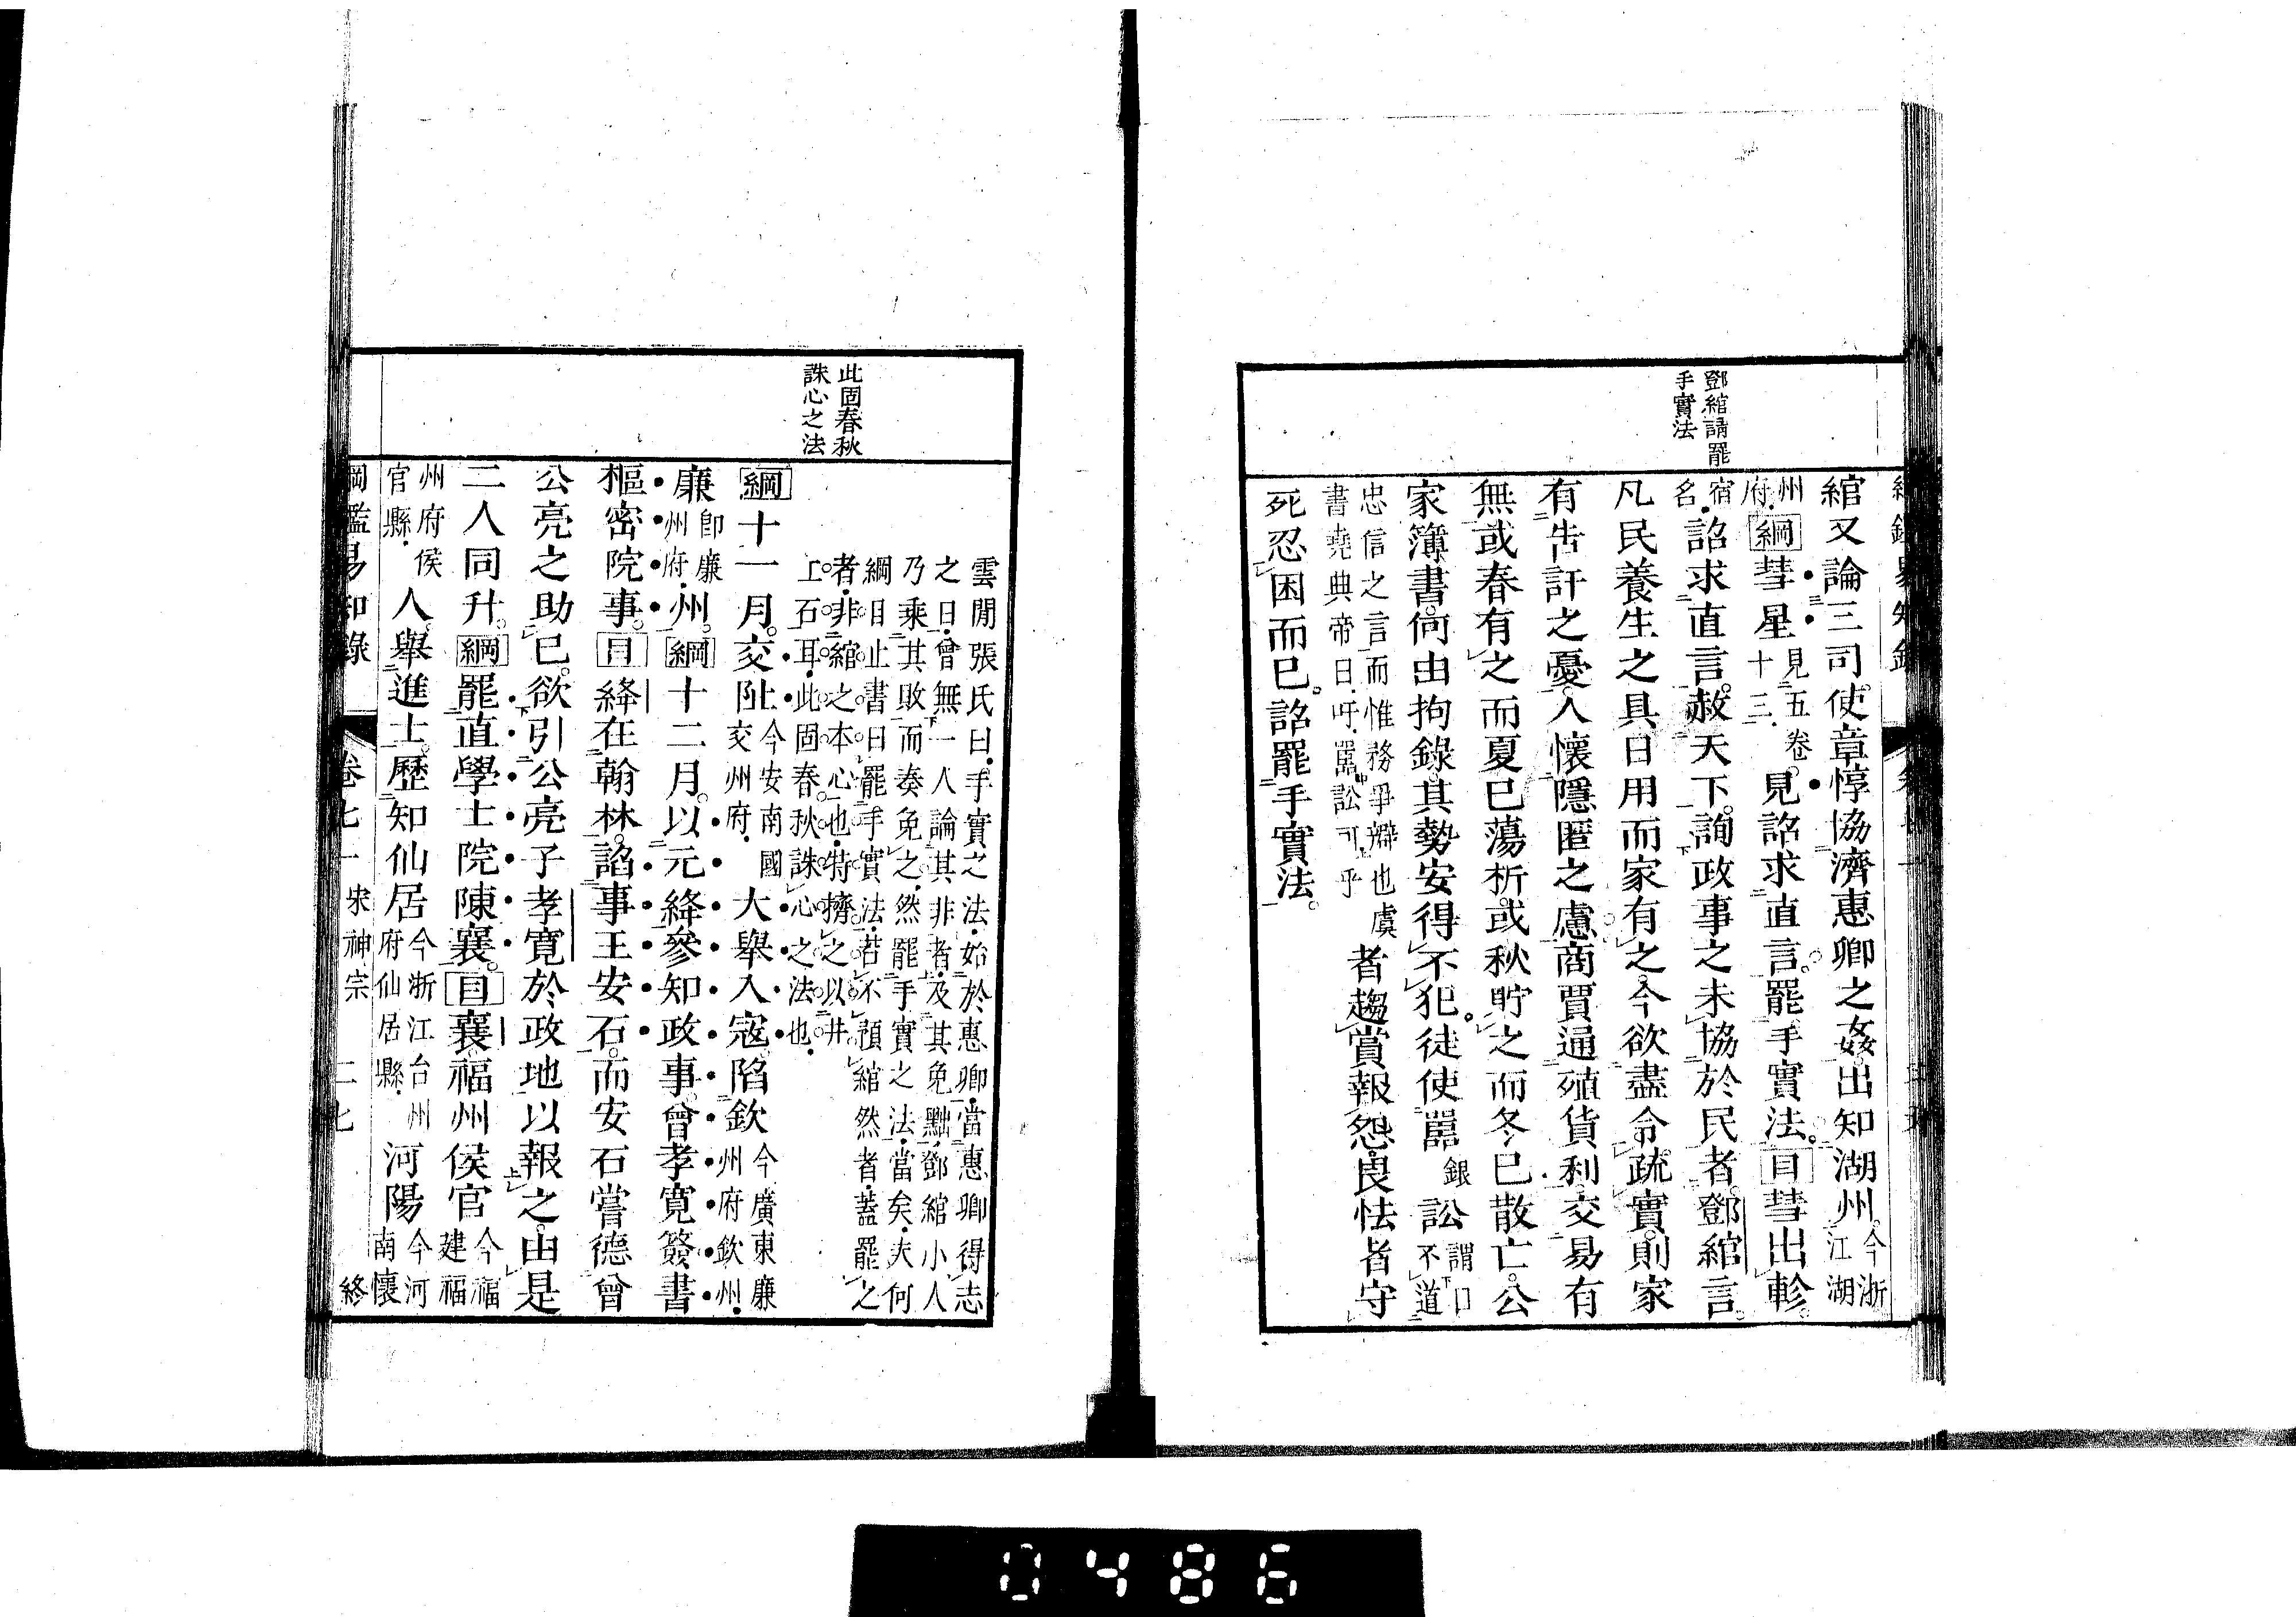 鄧綰請罷
手實法
綰又論三司使章惇協濟惠卿之姦出知湖州今浙江湖
州府綱彗星見五卷十三見詔求直言罷手實法目彗出軫
宿名詔求直言赦天下詢政事之未協於民者鄧綰言
凡民養生之具日用而家有之今欲盡令疏實則家
有告訐之憂人懷隱匿之慮商賈通殖貨利交易有
無或春有之而夏已蕩析或秋貯之而冬已散亡公
家簿書何由拘錄其勢安得不犯徒使嚚銀訟謂口不道
忠信之言而惟務爭辯也虞書堯典帝曰吁嚚訟可乎者趨賞報怨良怯者守
死忍困而已詔罷手實法
此固春秋
誅心之法
雲間張氏曰手實之法始於惠卿當惠卿得志
之日曾無一人論其非者及其免黜鄧綰小人
乃乘其敗而奏免之然罷手實之法當矣夫何
綱目止書曰罷手實法若不預綰然者蓋罷之
者非綰之本心也特擠之以井
上石耳此固春秋誅心之法也
綱十一月交阯今安南國交州府大舉入寇陷欽今廣東廉州府欽州
廉卽廉州府州綱十二月以元絳參知政事曾孝寬簽書
樞密院事目絳在翰林諂事王安石而安石嘗德曾
公亮之助已欲引公亮子孝寬於政地以報之由是
二人同升綱罷直學士院陳襄目襄福州侯官今福建福
州府侯官縣人舉進士歷知仙居今浙江台州府仙居縣河陽今河南懷
綱鑑易知錄 卷七一 宋神宗 二七 終
0486